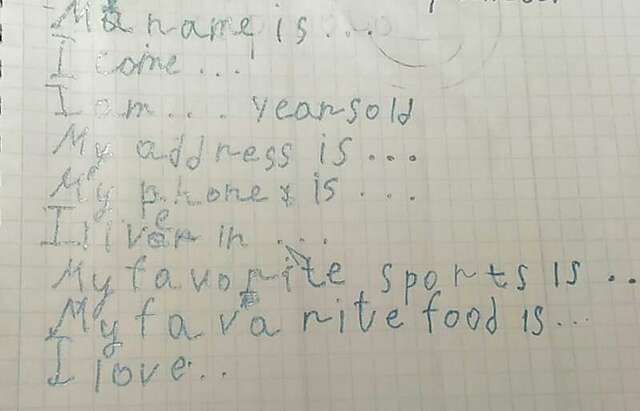 My name is....
I come...
I am.... years old
My address is...
My phone is...
I live in...
My favorite sports is..
My favarite food is...
I love...